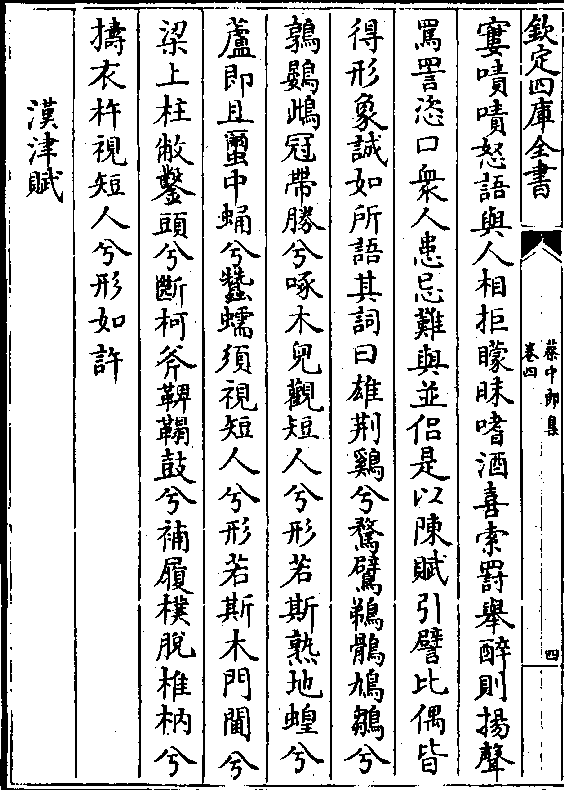 欽定四庫全書
蔡中郎集
卷四
四
窶嘖嘖怒語與人相拒矇昧嗜酒喜索罸舉醉則揚聲
罵詈恣口衆人患忌難與並侣是以陳賦引譬比偶皆
得形象誠如所語其詞曰雄荆鷄兮鶩鷿鵜鶻鳩鶵兮
鶉鷃雌冠帶勝兮啄木兒觀短人兮形若斯熱地蝗兮
蘆即且䖵中蛹兮蠶蠕須視短人兮形若斯木門閫兮
梁上柱敝鑿頭兮斷柯斧鞞鞨鼓兮補履樸脫椎枘兮
擣衣杵視短人兮形如許
漢津賦